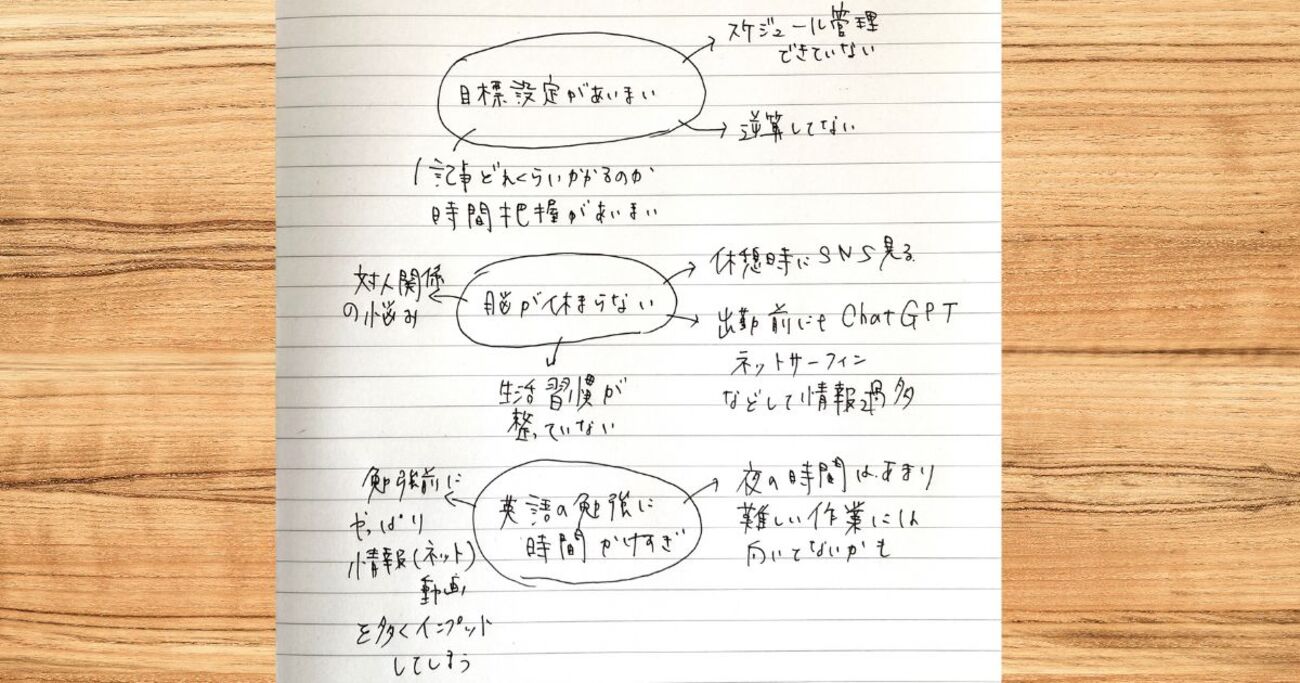 スケジュール管理
できていない
目標設定があいまい
逆算してない
1記事どれくらいかかるのか
時間把握があいまい
休憩時にSNS見る
対人関係
の悩み
脳が休まらない
出勤前にもChatGPT
ネットサーフィン
などして情報過多
生活習慣が
整っていない
勉強前に
やっぱり
情報(ネット)
動画
を多くインプット
してしまう
英語の勉強に
時間かけすぎ
夜の時間はあまり
難しい作業には
向いてないかも